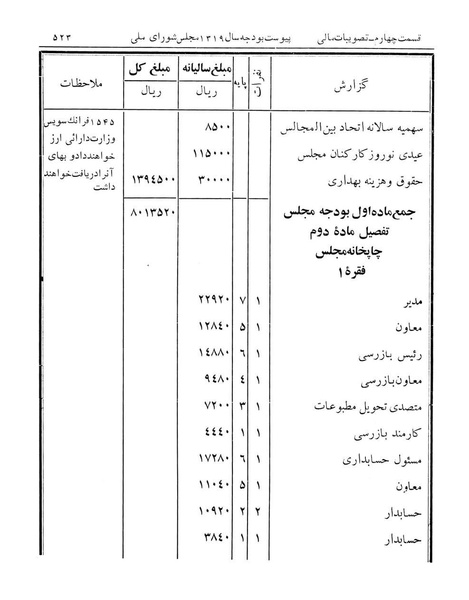 قسمت چهارم ـ تصویبات مالی پیوست بودجه سال ۱۳۱۹ مجلس شورای ملی ۵۲۳
گزارش نفرات پایه مبلغ سالیانه ریال مبلغ کل ریال ملاحظات
سهمیه سالانه اتحاد بین المجالس ۸۵۰۰ ۱۵۴۵ فرانک سویس
عیدی نوروز کارکنان مجلس ۱۱۵۰۰۰ وزارت دارائی ارز خواهند داد و بهای
حقوق و هزینه بهداری ۳۰۰۰۰ ۱۳۹٤۵۰۰ آنرا دریافت خواهند داشت
جمع ماده اول بودجه مجلس ۸۰۱۳۵۲۰
تفصیل مادۀ دوم
چاپخانه مجلس
فقرۀ ۱
مدیر ۱ ۷ ۲۲۹۲۰
معاون ۱ ۵ ۱۲۸٤۰
رئیس بازرسی ۱ ٦ ۱٤۸۸۰
معاون بازرسی ۱ ٤ ۹٤۸۰
متصدی تحویل مطبوعات ۱ ۳ ۷۲۰۰
کارمند بازرسی ۱ ۱ ٤٤٤۰
مسئول حسابداری ۱ ٦ ۱۷۲۸۰
معاون ۱ ۵ ۱۱۰٤۰
حسابدار ۲ ۲ ۱۰۹۲۰
حسابدار ۱ ۱ ۳۸٤۰